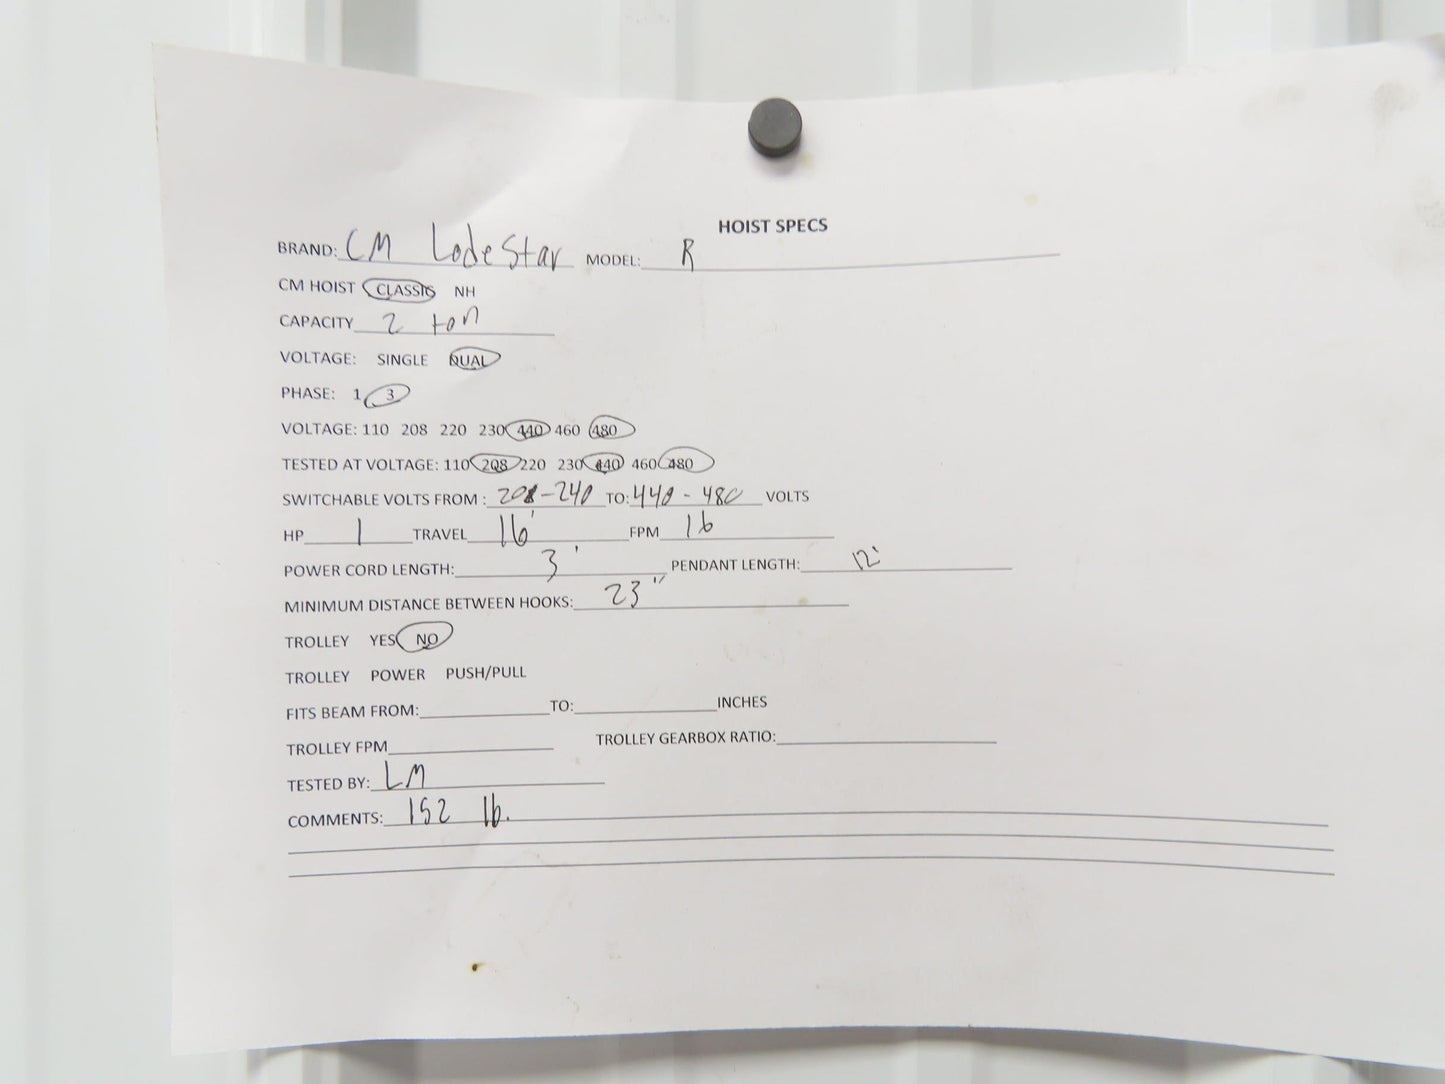 HOIST SPECS
BRAND: CM LodeStar MODEL: R
CM HOIST CLASSIC NH
CAPACITY 2 ton
VOLTAGE: SINGLE DUAL
PHASE: 1 3
VOLTAGE: 110 208 220 230 440 460 480
TESTED AT VOLTAGE: 110 208 220 230 440 460 480
SWITCHABLE VOLTS FROM : 208-240 TO: 440 - 480 VOLTS
HP 1 TRAVEL 16' FPM 16
POWER CORD LENGTH: 3' PENDANT LENGTH: 12'
MINIMUM DISTANCE BETWEEN HOOKS: 23"
TROLLEY YES NO
TROLLEY POWER PUSH/PULL
FITS BEAM FROM: TO: INCHES
TROLLEY FPM TROLLEY GEARBOX RATIO:
TESTED BY: LM
COMMENTS: 152 lb.